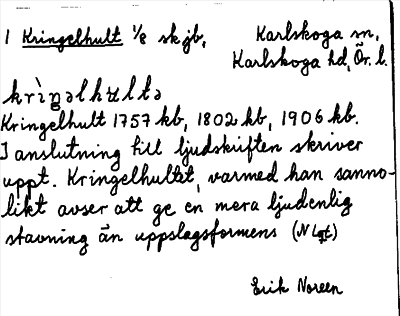 1 Kringelhult 1/8 skjb, Karlskoga sn,
Karlskoga hd, Ör. l.
krìŋəlhɯltə
Kringelhult 1757 kb, 1802 kb, 1906 kb.
I anslutning till ljudskriften skriver
uppt. Kringelhultet, varmed han sanno-
likt avser att ge en mera ljudenlig
stavning än uppslagsformens (N Lgt)
Erik Noreen